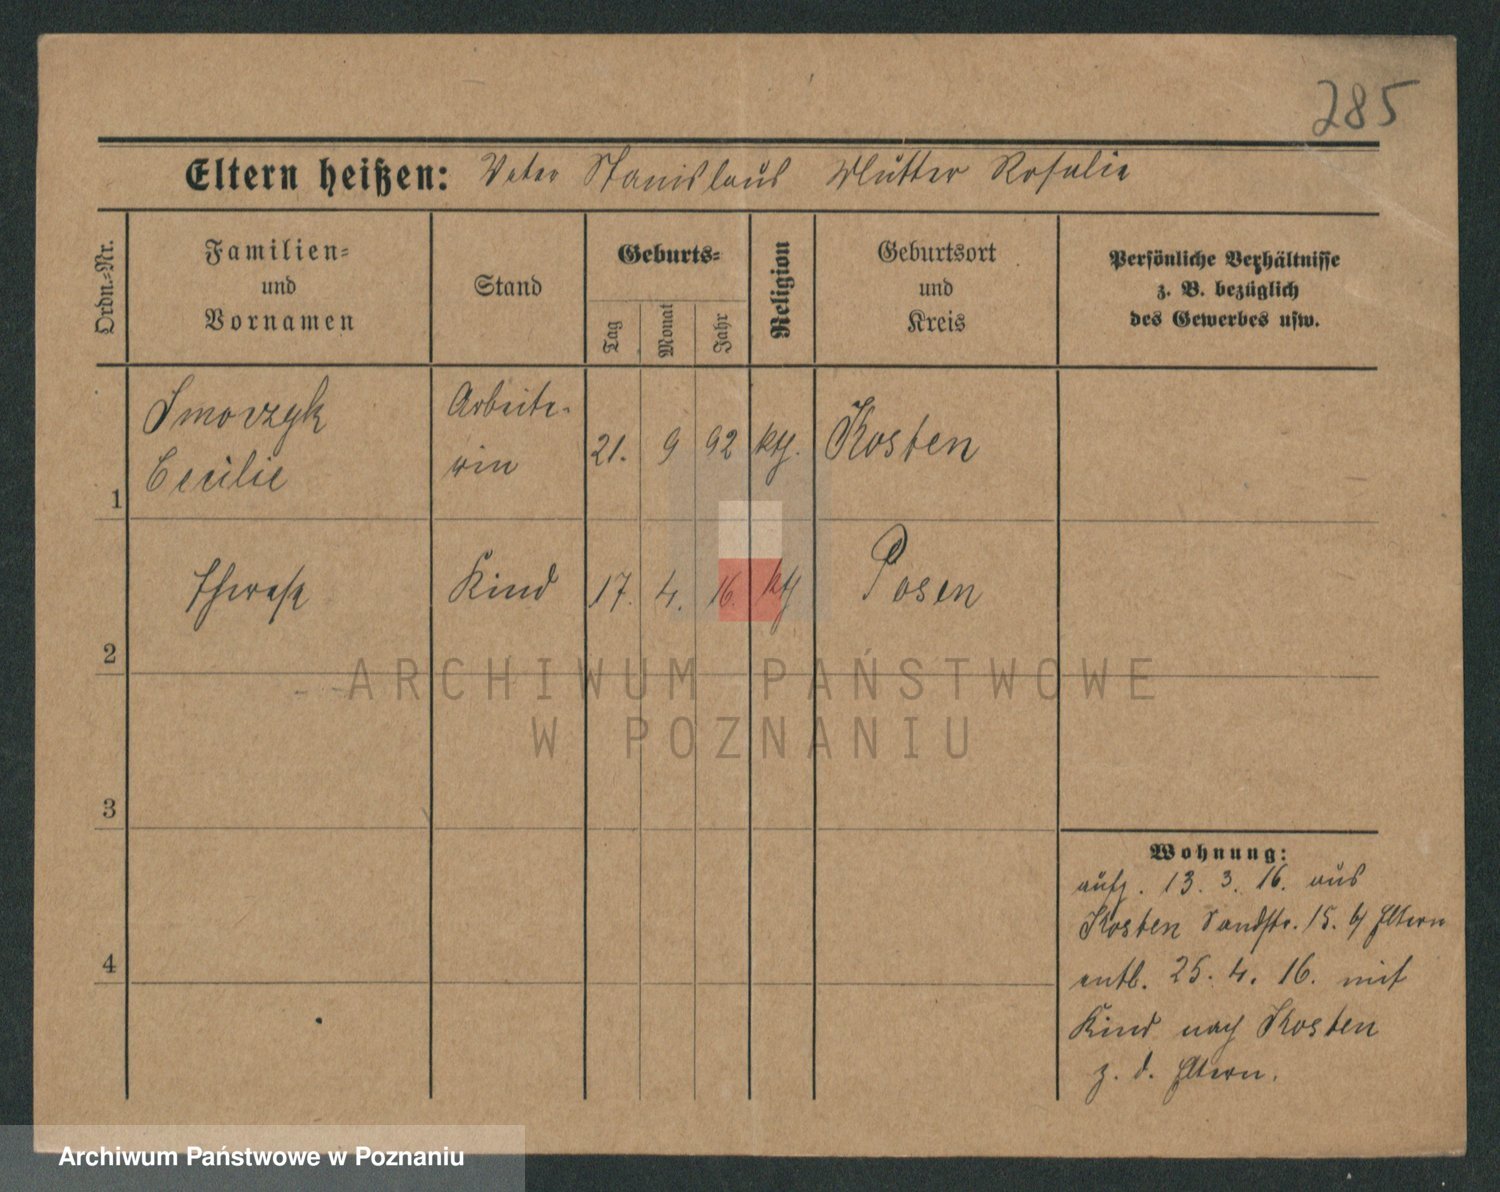 285
Eltern heißen: Vater Stanislaus Mutter Rosalie
Ordn.-Nr.
Familien-
und
Vornamen
Stand
Geburts-
Tag
Monat
Jahr
Religion
Geburtsort
und
Kreis
Persönliche Verhältnisse
z. B. bezüglich
des Gewerbes usw.
Smorzyk Arbeite-
Cecilie rin 21. 9 92 kth. Kosten
1
Therese Kind 17. 4. 16. kth Posen
2
ARCHIWUM PAŃSTWOWE
W POZNANIU
3
Wohnung:
aufg. 13. 3. 16. aus
Kosten Sandstr. 15. b/ Eltern
4
entb. 25. 4. 16. mit
Kind nach Kosten
z. d. Eltern.
Archiwum Państwowe w Poznaniu